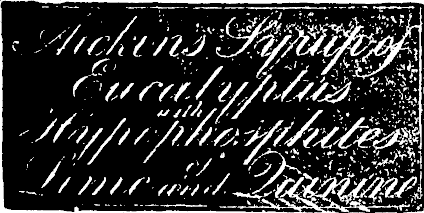 Aickens Syrup of
Eucalyptus
with
Hypophosphites
of
Lime and Quinine